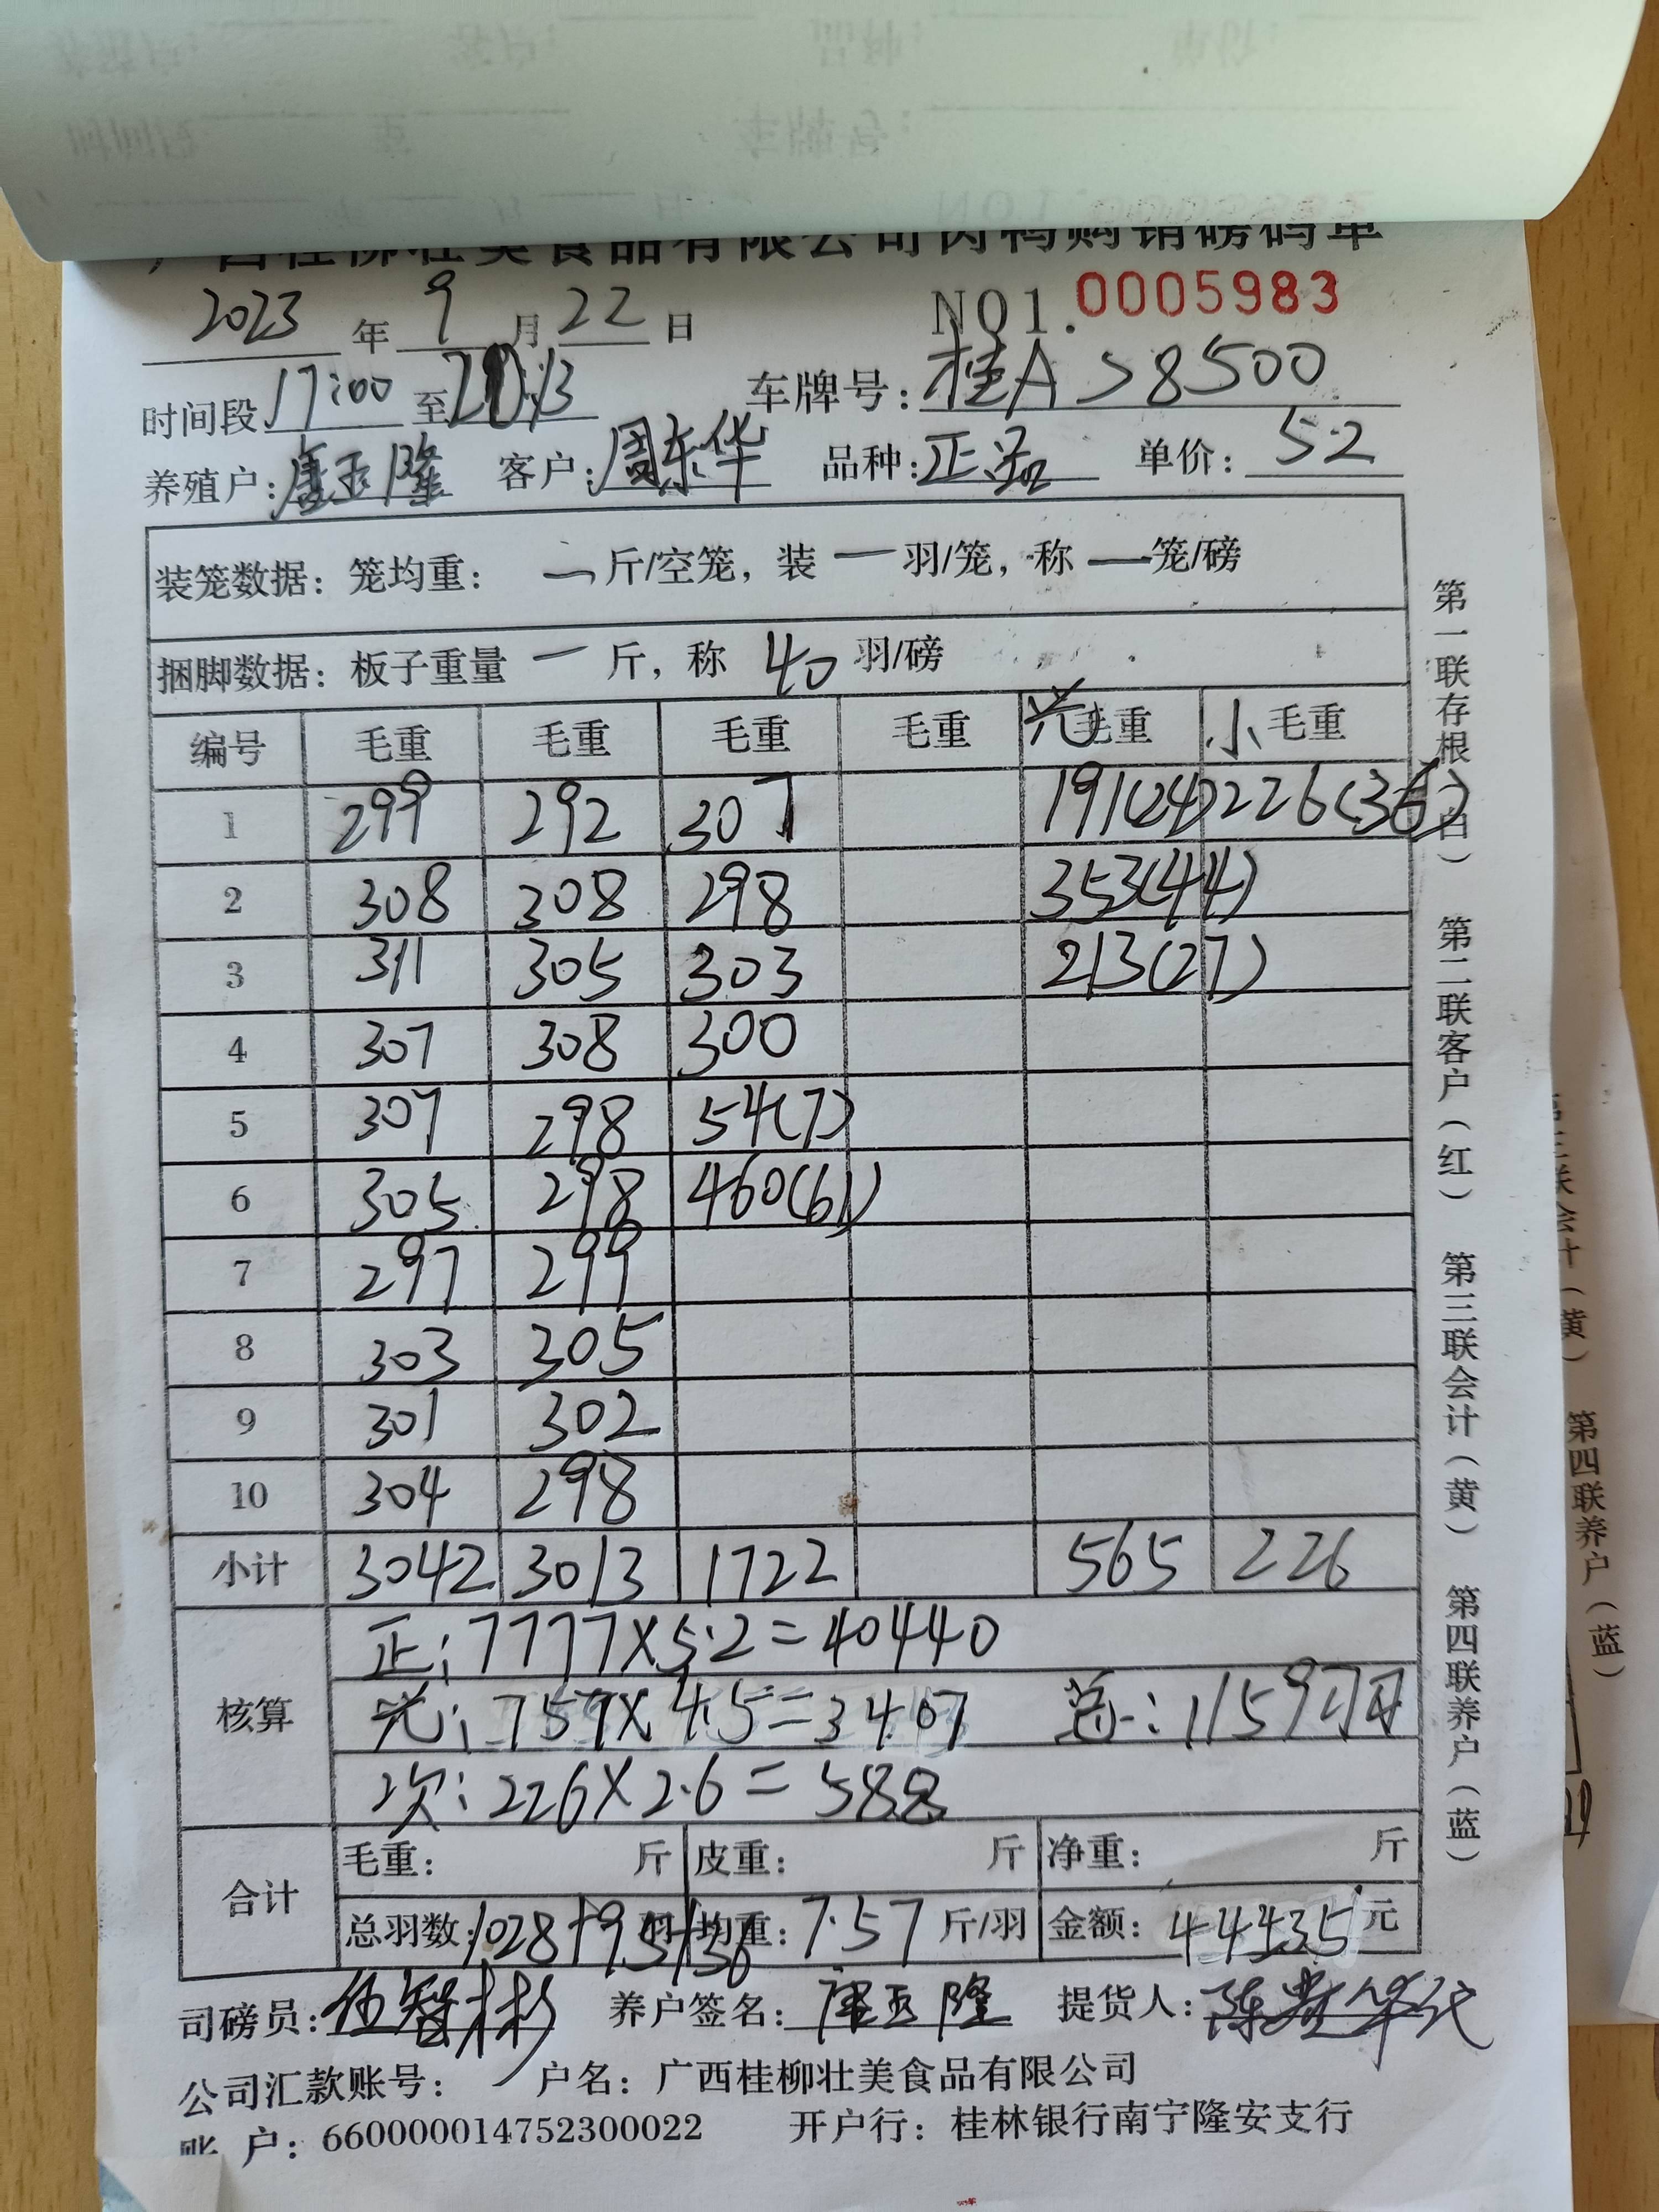 广西桂柳壮美食品有限公司肉鸭购销磅码单
2023 年 9 月 22 日 NO1.0005983
时间段 17:00 至 车牌号: 桂A S8500
养殖户: 唐玉隆 客户: 周东华 品种: 正品 单价: 5.2
装笼数据: 笼均重: 一 斤/空笼, 装 一 羽/笼, 称 一 笼/磅
捆脚数据: 板子重量 一 斤, 称 40 羽/磅
编号 毛重 毛重 毛重 毛重 光 毛重 小 毛重
1 299 292 307 191(24) 226(36)
2 308 308 298 353(44)
3 311 305 303 213(27)
4 307 308 300
5 307 298 54(7)
6 305 298 460(61)
7 297 299
8 303 305
9 301 302
10 304 298
小计 3042 3013 1722 565 226
核算
正: 7777×5.2=40440
光: 757×4.5=3407 总: 1159羽
次: 226×2.6=588
合计
毛重: 斤 皮重: 斤 净重: 斤
总羽数: 1028+95+36 羽 均重: 7.57 斤/羽 金额: 44435 元
司磅员: 伍智彬 养户签名: 唐玉隆 提货人:
公司汇款账号: 户名: 广西桂柳壮美食品有限公司
账 户: 660000014752300022 开户行: 桂林银行南宁隆安支行
第一联存根(白) 第二联客户(红) 第三联会计(黄) 第四联养户(蓝)
第四联养户(蓝)